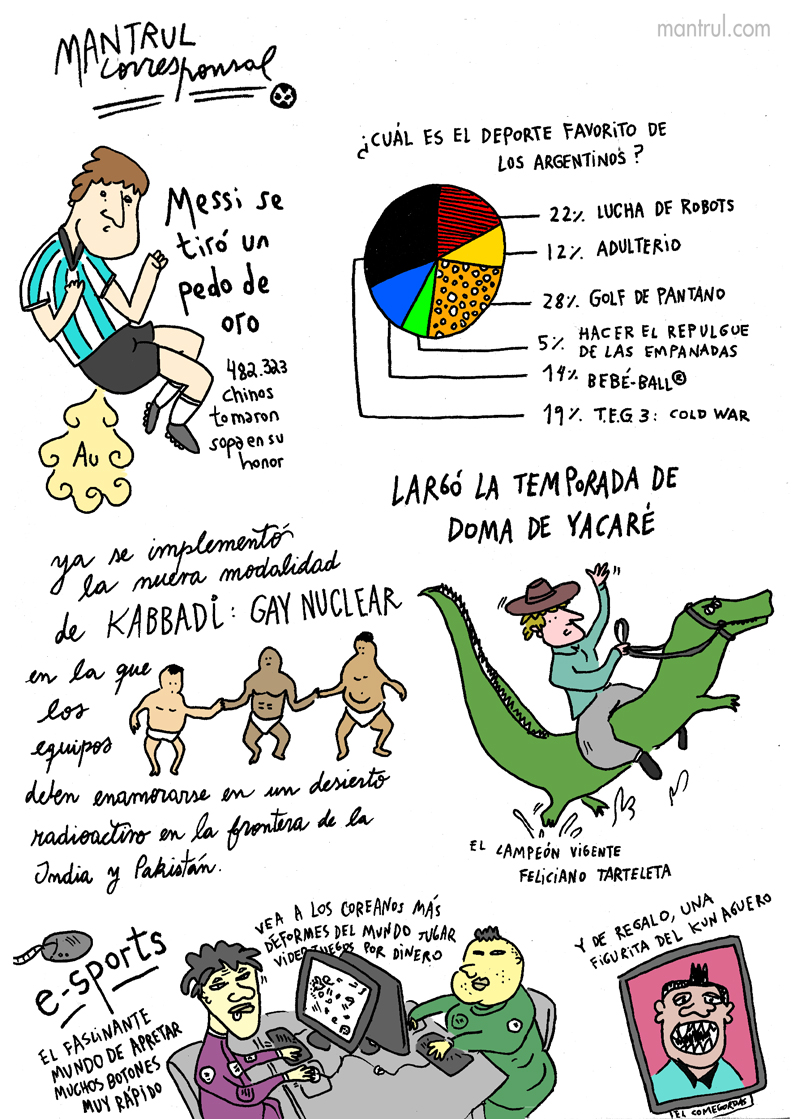 mantrul.com
MANTRUL
corresponsal
Messi se
tiró un
pedo de
oro
482.323
chinos
tomaron
sopa en su
honor
Au
¿CUÁL ES EL DEPORTE FAVORITO DE
LOS ARGENTINOS?
22% LUCHA DE ROBOTS
12% ADULTERIO
28% GOLF DE PANTANO
5% HACER EL REPULGUE
DE LAS EMPANADAS
14% BEBÉ-BALL®
19% T.E.G. 3: COLD WAR
LARGÓ LA TEMPORADA DE
DOMA DE YACARÉ
EL CAMPEÓN VIGENTE
FELICIANO TARTELETA
ya se implementó
la nueva modalidad
de KABBADI: GAY NUCLEAR
en la que
los
equipos
deben enamorarse en un desierto
radioactivo en la frontera de la
India y Pakistán.
e-sports
EL FASCINANTE
MUNDO DE APRETAR
MUCHOS BOTONES
MUY RÁPIDO
VEA A LOS COREANOS MÁS
DEFORMES DEL MUNDO JUGAR
VIDEOJUEGOS POR DINERO
Y DE REGALO, UNA
FIGURITA DEL KUN AGUERO
"EL COMEGORDAS"